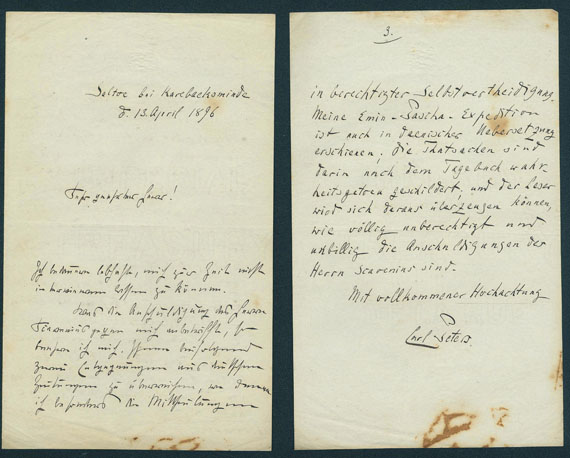 Seltoe bei Karebaeksminde
d. 13. April 1896
Sehr geehrter Herr!
Ich bedaure lebhaft, mich zur Zeit nicht
interviewen lassen zu können.
Was die Anschuldigung des Herrn
Scavenius gegen mich anbetrifft, so
ich mir, Ihnen beifolgend
zwei Entgegnungen aus deutschen
Zeitungen zu überreichen, von denen
ich besonders die Mittheilungen
3.
in berechtigter Selbstvertheidigung.
Meine Emin-Pascha-Expedition
ist auch in daenischer Uebersetzung
erschienen; die Thatsachen sind
darin nach dem Tagebuch wahr
heitsgetreu geschildert, und der Leser
wird sich daraus überzeugen können,
wie völlig unberechtigt und
unbillig die Anschuldigungen des
Herrn Scavenius sind.
Mit vollkommener Hochachtung
Carl Peters.